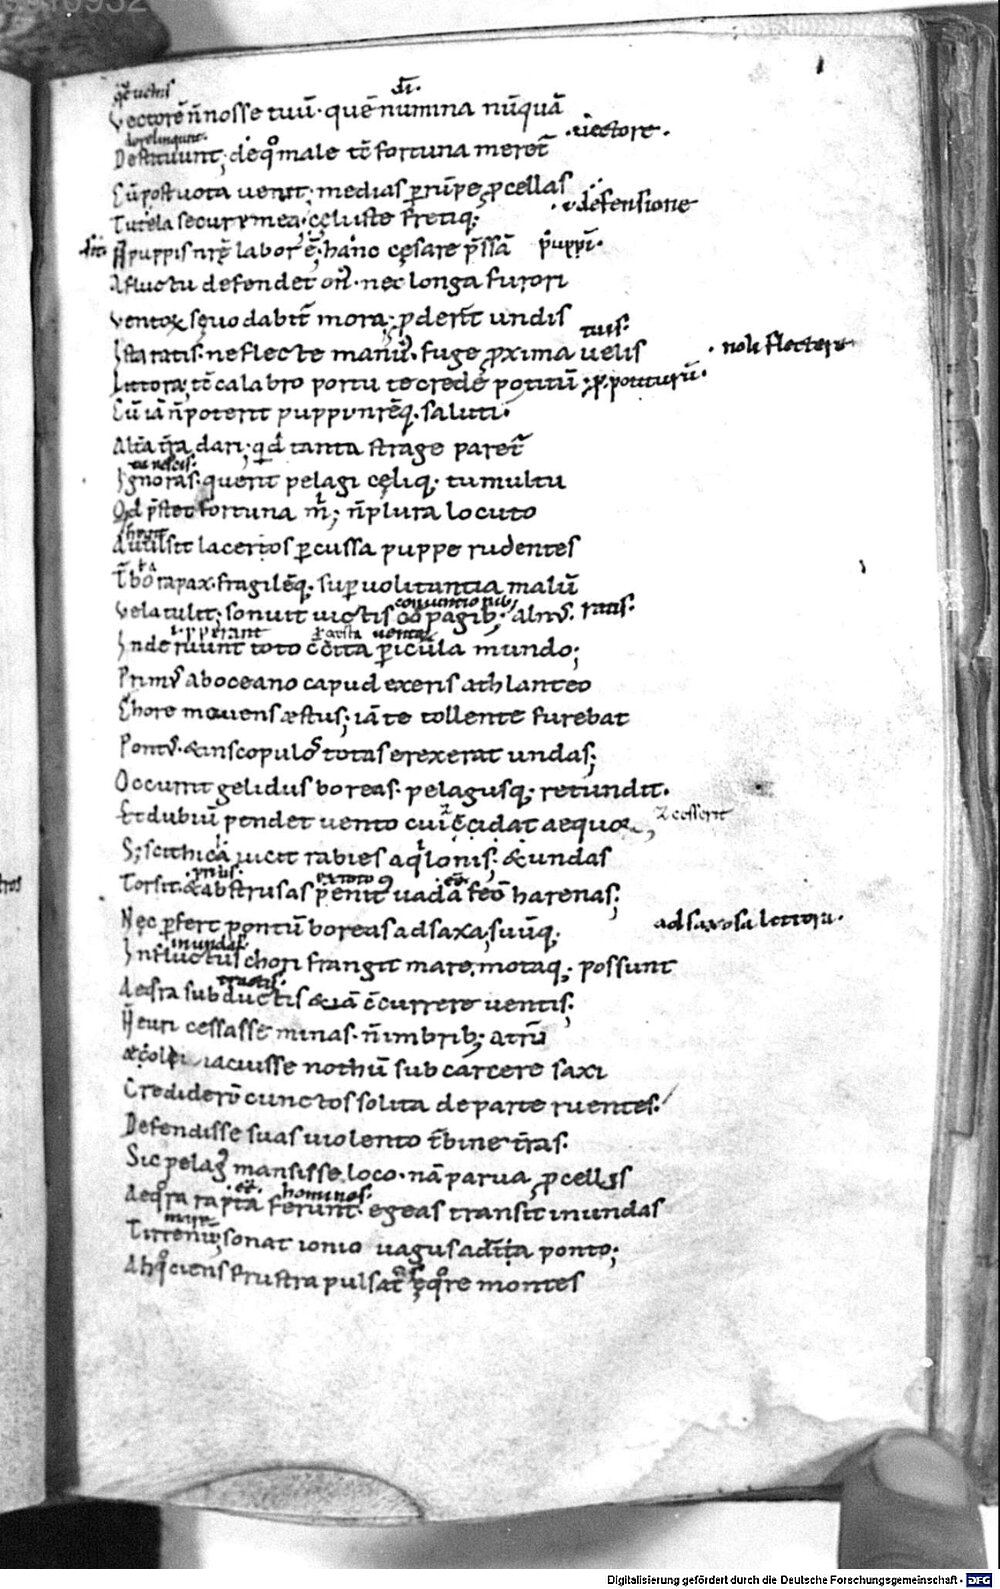 vectorē n̄ nosse tuū· quē numina nūquā
·i· vectore·
Destituunt; de qͦ male tc̄ fortuna meret̄
Cū post vota uenit; medias per rūpe procellas
·i· defensione
Tutela secura mea; cęli iste fretiq;
puppis nr̄ę labor ē; hanc cęsare p̄ssā
puppī·
A fluctu defendet on9· nec longa furori
ventoꝝ sęuo dabit̄ mora; proderit undis
tuis·
Ista ratis· ne flecte manū· fuge proxima uelis
· noli flectere
Littora; tc̄ calabro portu te crede potitū
Cū iā n̄ poterit puppi nr̄ęq· saluti·
Alta tr̄a dari; qd tanta strage paret̄
Ignoras· querit pelagi cęliq; tumultu
Qd p̄stet fortuna m̄; n̄ plura locuto
Auulsit lacertos percussa puppe rudentes
Turbo rapax· fragilēq; super uolitantia malū
vela tulit; sonuit uictis cōpagib; aln9·
ratis·
Inde ruunt toto cc̄ita pericula mundo;
Prim9 ab oceano capud exeris athlanteo
Chore mouens æstus; iā te tollente furebat
Pont9· & in scopulos totas erexerat undas;
Occurrit gelidus boreas· pelagusq; retundit·
Et dubiū pendet vento cui cc̄idat aequor
cesserit
S; scithici uicit rabies aqͥlonis; & undas
Torsit· & abstrusas penit9 uada fec̄ harenas;
Nec perfert pontū boreas ad saxa; suūq;
ad saxosa littora·
In fluctus chori frangit mare; motaq; possunt
Aeqͦra subductis & iā c̄currere uentis;
N̄ euri cessasse minas· n̄ imbrib; atrū
æoli iacuisse nothū sub carcere saxi
Credider̄ cunctos solita de parte ruentes·
Defendisse suas uiolento t̄bine tr̄as·
Sic pelag9 mansisse loco· nā parua procellis
homines·
Aeqͦra rapta ferunt· egeas transit in undas
Tirrenū; sonat ionio uagus adria ponto;
Ah qͦciens frustra pulsat9 ęqͦre montes
Digitalisierung gefördert durch die Deutsche Forschungsgemeinschaft - DFG